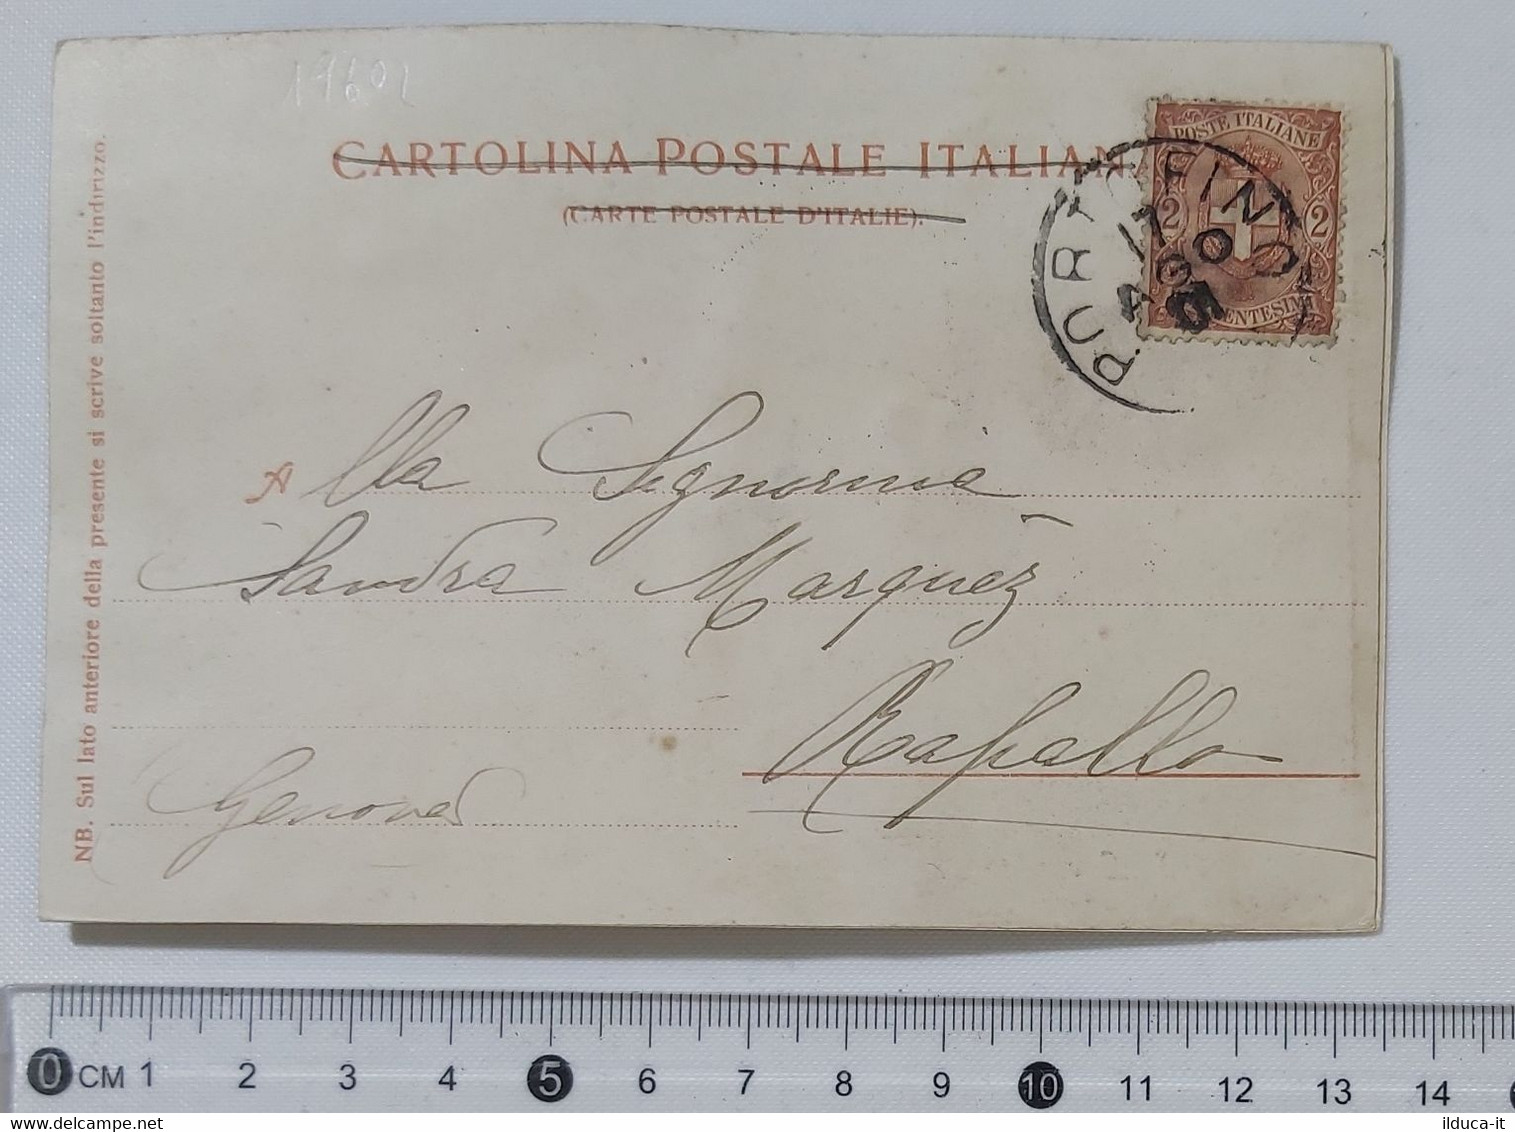 19601
CARTOLINA POSTALE ITALIAN
(CARTE POSTALE D'ITALIE).
POSTE ITALIANE
2 2
CENTESIMI
PORTOFINO
17
AGO
01
NB. Sul lato anteriore della presente si scrive soltanto l'indirizzo.
Alla Signorina
Sandra Marquez
Rapallo
Genova
0 CM 1 2 3 4 5 6 7 8 9 10 11 12 13 14
ilduca-it